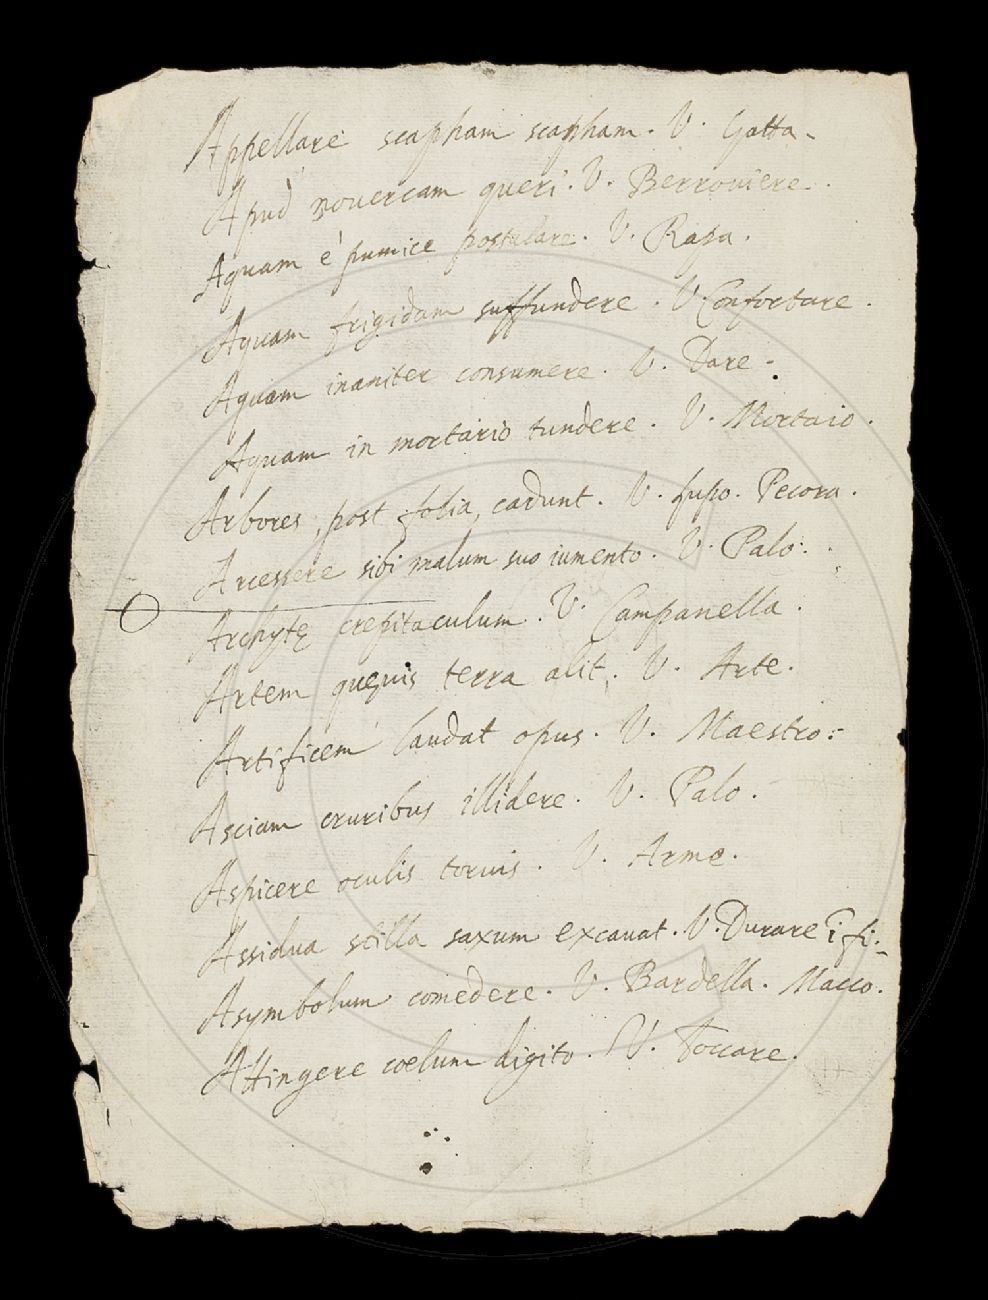 Appellare scapham scapham. V. Gatta.
Apud nouercam queri. V. Berrouiere.
Aquam è pumice postulare. V. Rapa.
Aquam frigidam suffundere. V. Confortare.
Aquam inaniter consumere. V. Dare.
Aquam in mortario tundere. V. Mortaio.
Arbores, post folia, cadunt. V. Lupo. Pecora.
Arcessere sibi malum suo iumento. V. Palo.
Archytę crepitaculum. V. Campanella.
Artem quęuis terra alit. V. Arte.
Artificem laudat opus. V. Maestro.
Asciam cruribus illidere. V. Palo.
Aspicere oculis toruis. V. Arme.
Assidua stilla saxum excauat. V. Durare i fi.
Asymbolum comedere. V. Bardella. Macco.
Attingere coelum digito. V. Toccare.